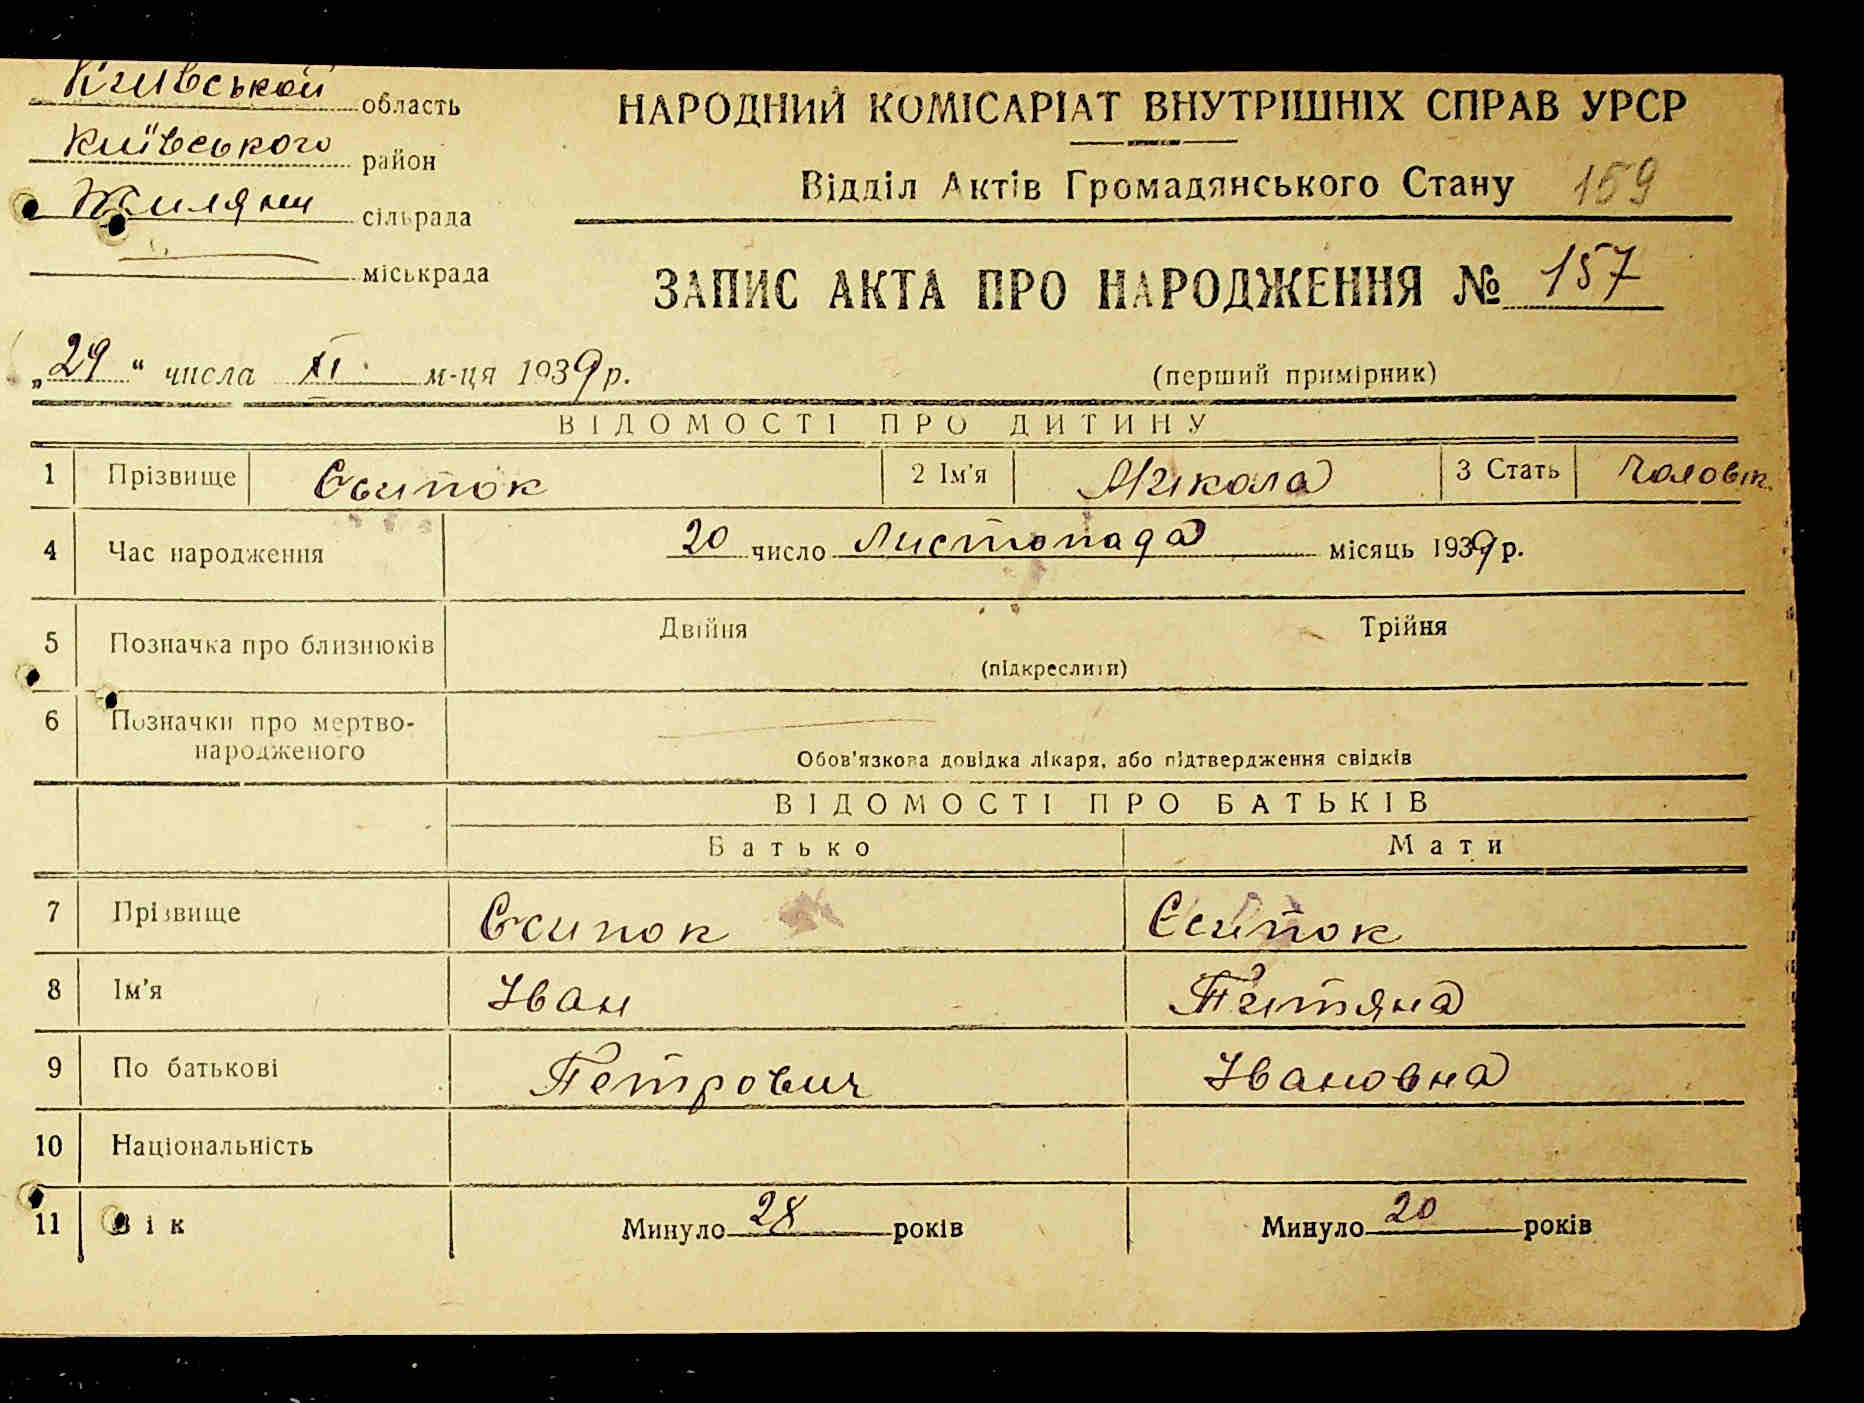 Київської область
Київського район
Жиляни сільрада
міськрада
НАРОДНИЙ КОМІСАРІАТ ВНУТРІШНІХ СПРАВ УРСР
Відділ Актів Громадянського Стану 159
ЗАПИС АКТА ПРО НАРОДЖЕННЯ № 157
„29“ числа XI м-ця 1939 р.
(перший примірник)
ВІДОМОСТІ ПРО ДИТИНУ
1 Прізвище Єсипок 2 Ім'я Микола 3 Стать Чоловік.
4 Час народження 20 число Листопада місяць 1939 р.
5 Позначка про близнюків Двійня Трійня
(підкреслити)
6 Позначки про мертво-
народженого
Обов'язкова довідка лікаря, або підтвердження свідків
ВІДОМОСТІ ПРО БАТЬКІВ
Батько Мати
7 Прізвище Єсипок Єсипок
8 Ім'я Іван Титяна
9 По батькові Петрович Івановна
10 Національність
11 Вік Минуло 28 років Минуло 20 років